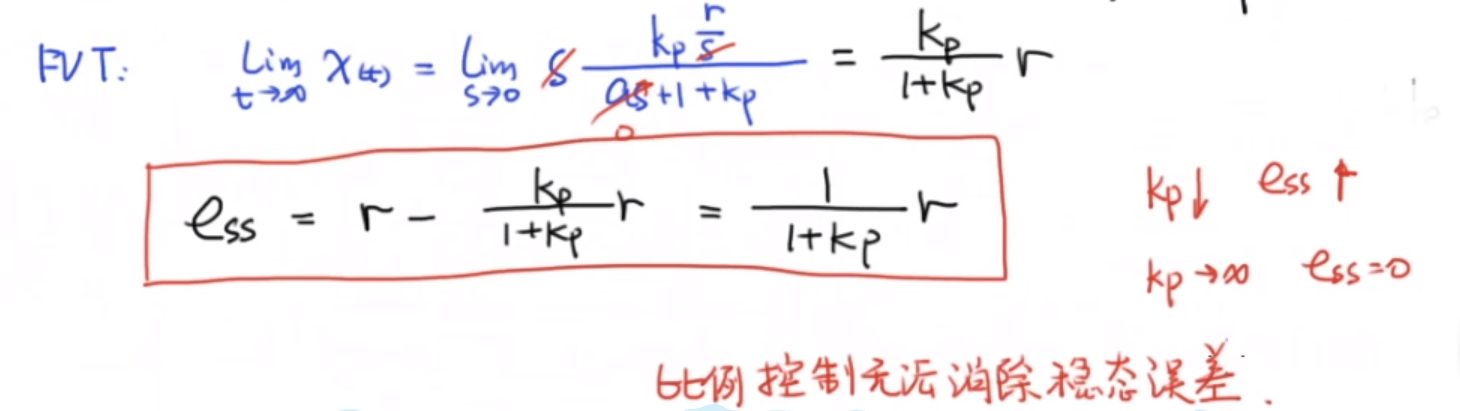 FVT: Lim t→∞ x(t) = Lim s→0 s kp r/s / (as+1+kp) = kp/(1+kp) r
0
ess = r - kp/(1+kp) r = 1/(1+kp) r
kp↓ ess↑
kp→∞ ess=0
比例控制无法消除稳态误差.